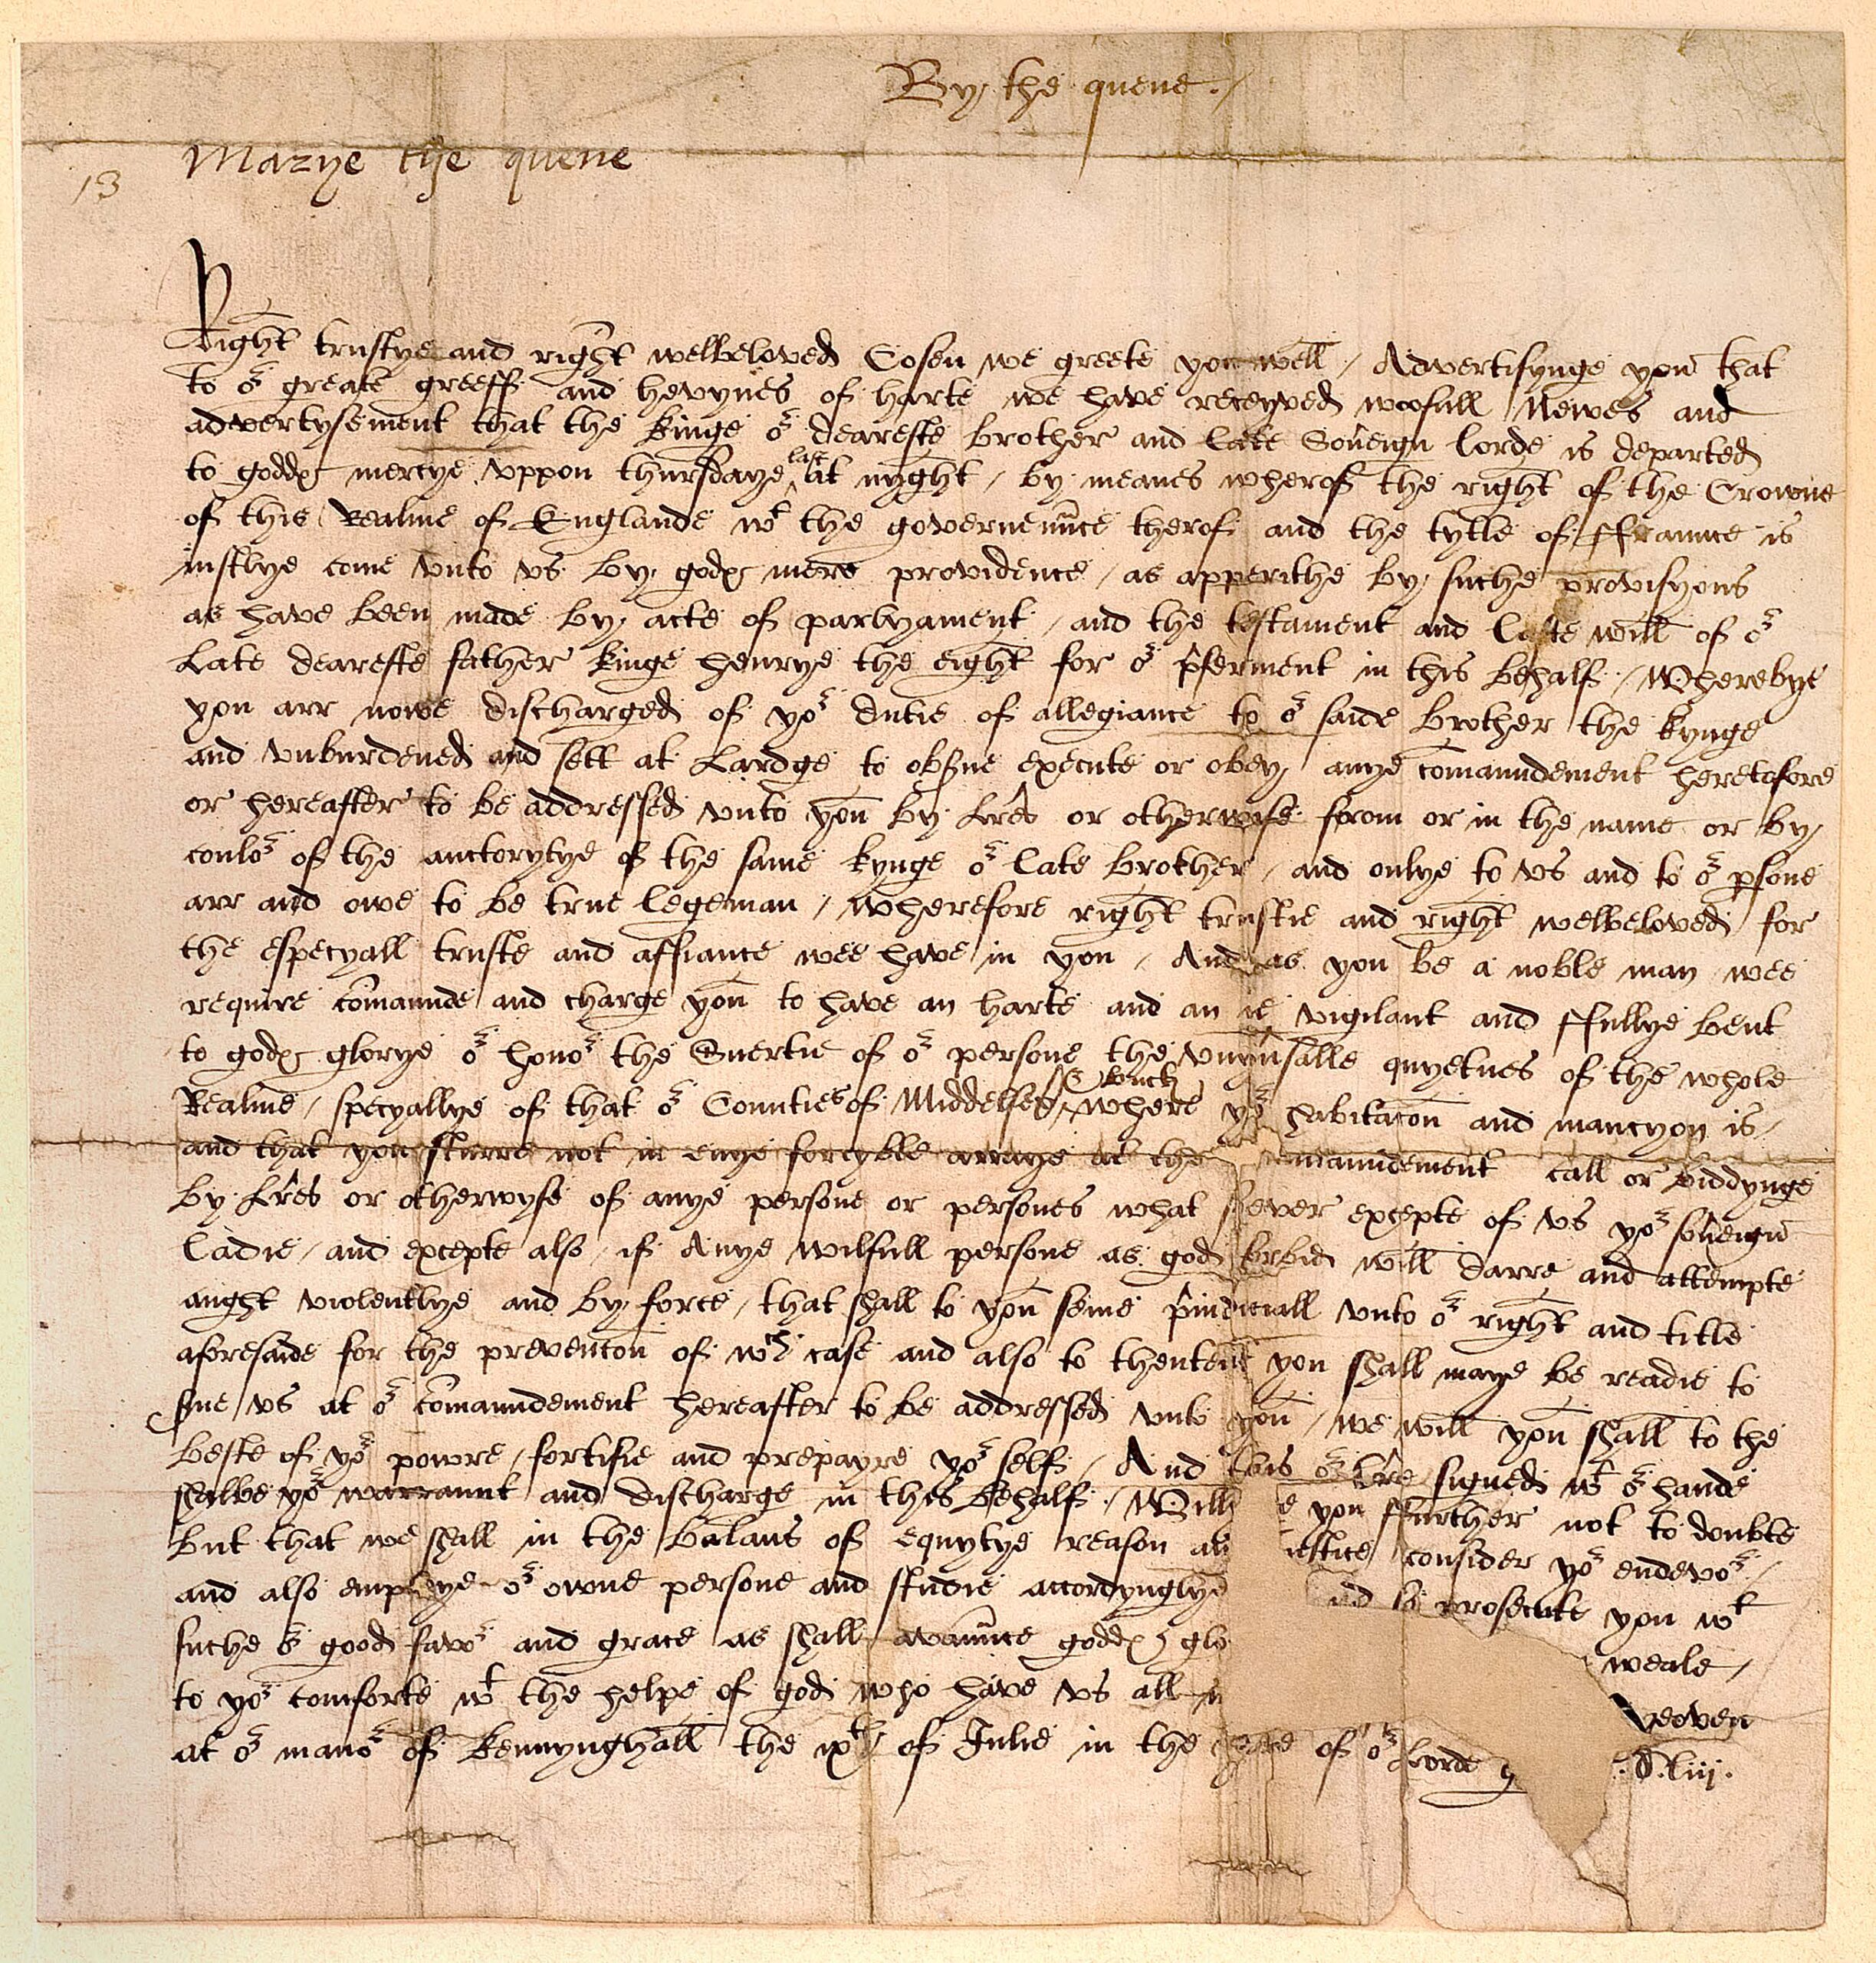 By the quene ./
Marye the quene
13
Right trustye and right welbeloved Cosen we greete you well / Advertisynge you that
to oʳ greate greeff and hevynes of harte we have receyved woofull Newes and
advertysement that the kinge oʳ deareste brother and late Soveign lorde is departed
to goddꝭ mercye vppon thursdaye last at nyght / by meanes wherof the right of the Crowne
of this Realme of Englande wᵗ the governeunce therof and the tytle of ffraunce is
iustlye come vnto vs by godꝭ mere providence / as apperithe by suche provisyons
as have been made by acte of parlyament / and the testament and laste will of oʳ
Late deareste father kinge henrye the eight for oʳ p̂ferment in this behalf / Wherebye
you arr nowe discharged of yoʳ dutie of allegiance to oʳ saide brother the kynge
and vnburdened and sett at Lardge to obs̃ue execute or obey anye comaundement heretofore
or hereafter to be addressed vnto you by l̃res or otherwyse from or in the name or by
couloʳ of the auctorytye of the same kynge oʳ late brother / and onlye to vs and to oʳ ꝑsone
arr and owe to be true legeman / Wherefore right trustie and right welbeloved for
the especyall truste and affiance wee have in you / And as you be a noble man wee
require cõmaunde and charge you to have an harte and an ie vigilant and ffullye bent
to godꝭ glorye oʳ honoʳ the Suertie of oʳ persone the vnyṽsalle quyetnes of the whole
Realme / specyallye of that oʳ Counties of Middelsex & Buck where yoʳ habitacõn and mancyon is /
and that you sturre not in enye forcyble arraye at the maundement call or biddynge
by l̃res or otherwyse of anye persone or persones what soever excepte of vs yoʳ soveign
Ladie / and excepte also / if Anye wilfull persone as god forbid will darre and attempte
aught violentlye and by force / that shall to you seme p̂iudiciall vnto oʳ right and title
aforesaide for the prevencõn of wᶜʰ case and also to thentent you shall maye be readie to
s̃ue vs at oʳ cõmaundement hereafter to be addressed vnto you / we will you shall to the
beste of yoʳ powre / fortifie and prepayre yoʳ self / And this oʳ l̃re signed wᵗ oʳ hande
shalbe yoʳ warraunt and discharge in this behalf / Will e you ffurther not to doubte
but that we shall in the balans of equytye reason an iustice consider yoʳ endevoʳ /
and also employe oʳ owne persone and studie accordynglye nd to prosecute you wᵗ
suche oʳ good favoʳ and grace as shall avaunce goddꝭ glo weale /
to yoʳ comforte wᵗ the helpe of god who have vs all yeoven
at oʳ manoʳ of kennynghall the ixᵗʰ of Julie in the yere of oʳ Lorde .D.liij.